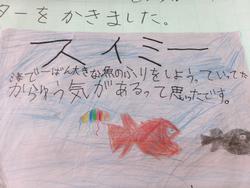 ターをかきました。
スイミー
海で一ばん大きな魚のふりをしようっていってた
からゆう気があるって思ったです。